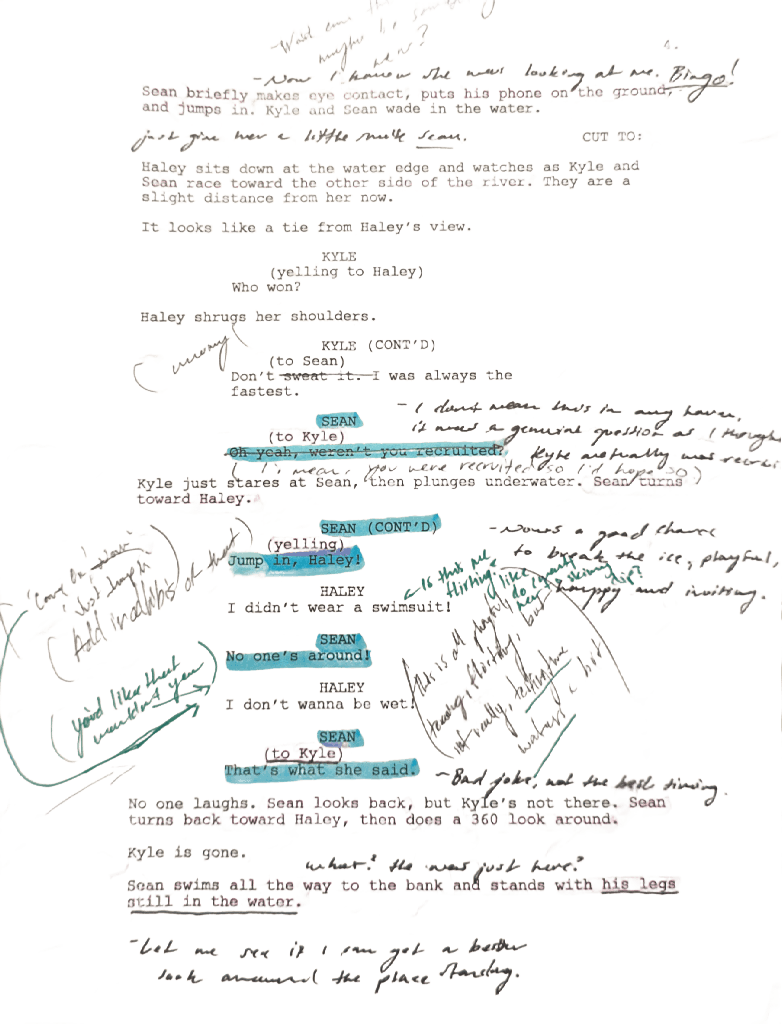 maybe be
now?
- Now I know she was looking at me. Bingo!
Sean briefly makes eye contact, puts his phone on the ground,
and jumps in. Kyle and Sean wade in the water.
just give her a little smile Sean.
CUT TO:
Haley sits down at the water edge and watches as Kyle and
Sean race toward the other side of the river. They are a
slight distance from her now.
It looks like a tie from Haley's view.
KYLE
(yelling to Haley)
Who won?
Haley shrugs her shoulders.
KYLE (CONT'D)
(to Sean)
Don't sweat it. I was always the
fastest.
- I don't mean this in any harm,
SEAN
it was a genuine question as I though
(to Kyle)
Oh yeah, weren't you recruited?
Kyle actually was recrui
( I mean, you were recruited so I'd hope so )
Kyle just stares at Sean, then plunges underwater. Sean turns
toward Haley.
SEAN (CONT'D)
- Now's a good chance
(yelling)
to break the ice, playful,
Jump in, Haley!
happy and inviting.
'Come On'
'Just Jump in'
(Add in adlibs of that)
Is this me
flirting?
like
do I want
skinny
dip?
HALEY
I didn't wear a swimsuit!
SEAN
No one's around!
(This is all playful
teasing, flirting, but
not really,
(you'd like that
wouldn't you)
HALEY
I don't wanna be wet!
SEAN
(to Kyle)
That's what she said.
- Bad joke, not the best timing.
No one laughs. Sean looks back, but Kyle's not there. Sean
turns back toward Haley, then does a 360 look around.
Kyle is gone.
what? He was just here?
Sean swims all the way to the bank and stands with his legs
still in the water.
- Let me see if I can get a better
look around the place standing.